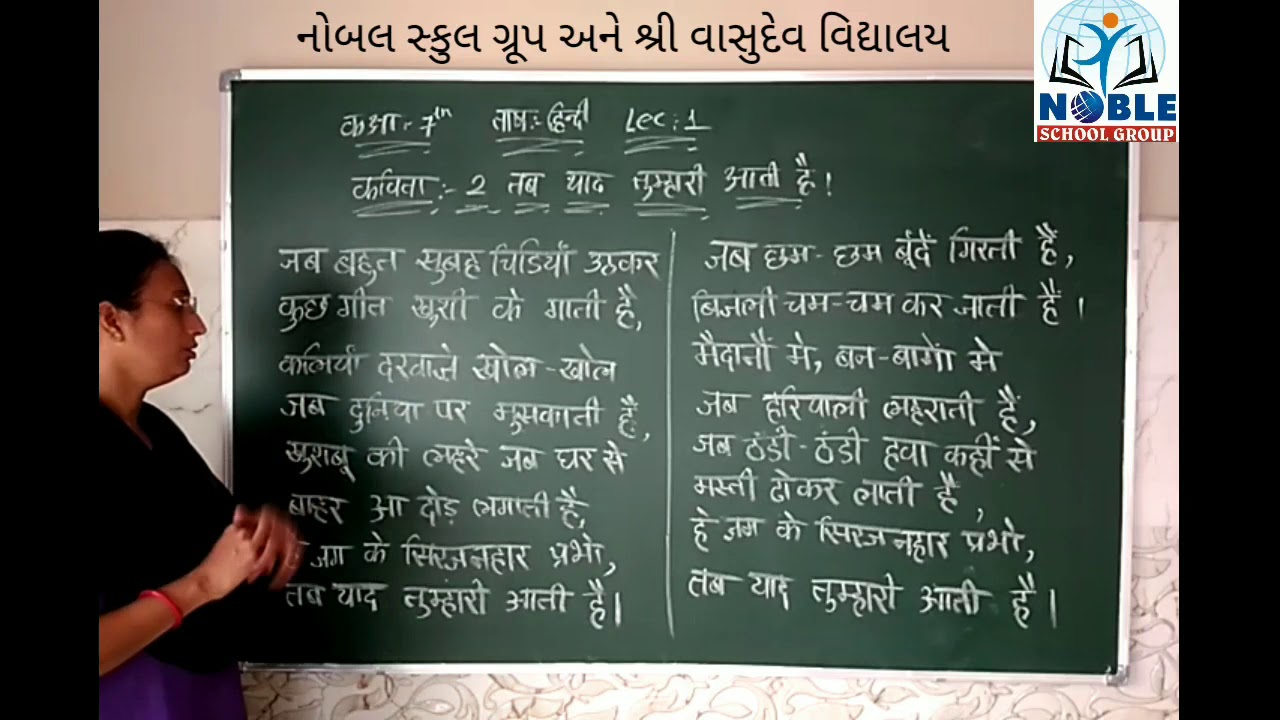 નોબલ સ્કુલ ગ્રૂપ અને શ્રી વાસુદેવ વિદ્યાલય
NOBLE
SCHOOL GROUP
कक्षा:- 7th भाषा: हिन्दी Lec: 1
कविता:- 2 तब याद तुम्हारी आती है!
जब बहुत सुबह चिडियाँ उठकर
कुछ गीत खुशी के गाती है,
कलियाँ दरवाजे खोल-खोल
जब दुनिया पर मुसकाती है,
खुशबू की लहरे जब घर से
बाहर आ दोड़ लगाती है,
जग के सिरजनहार प्रभो,
तब याद तुम्हारी आती है।
जब छम-छम बूंदें गिरती हैं,
बिजली चम-चम कर जाती हैं।
मैदानौं मे, बन-बागों मे
जब हरियाली लहराती हैं,
जब ठंडी-ठंडी हवा कहीं से
मस्ती ढोकर लाती हैं,
हे जग के सिरजनहार प्रभो,
तब याद तुम्हारी आती है।